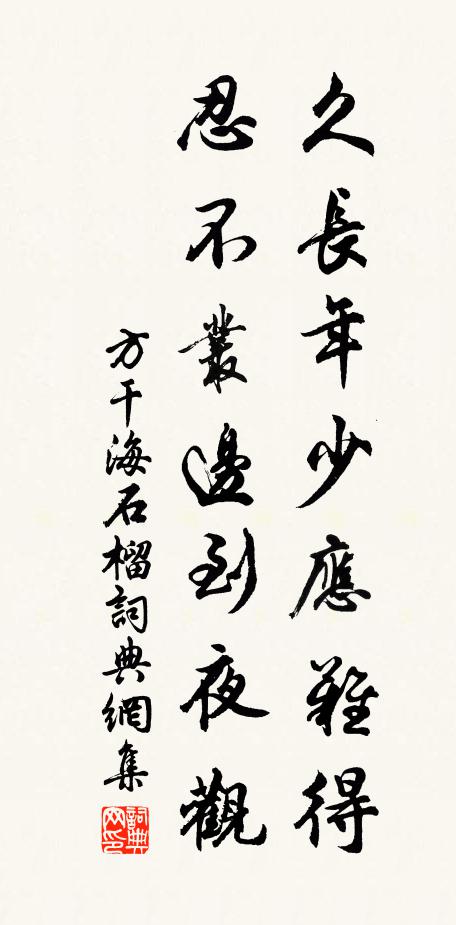 久長年少應難得
忍不叢邊到夜觀
方干海石榴詞典網集
詞典網印